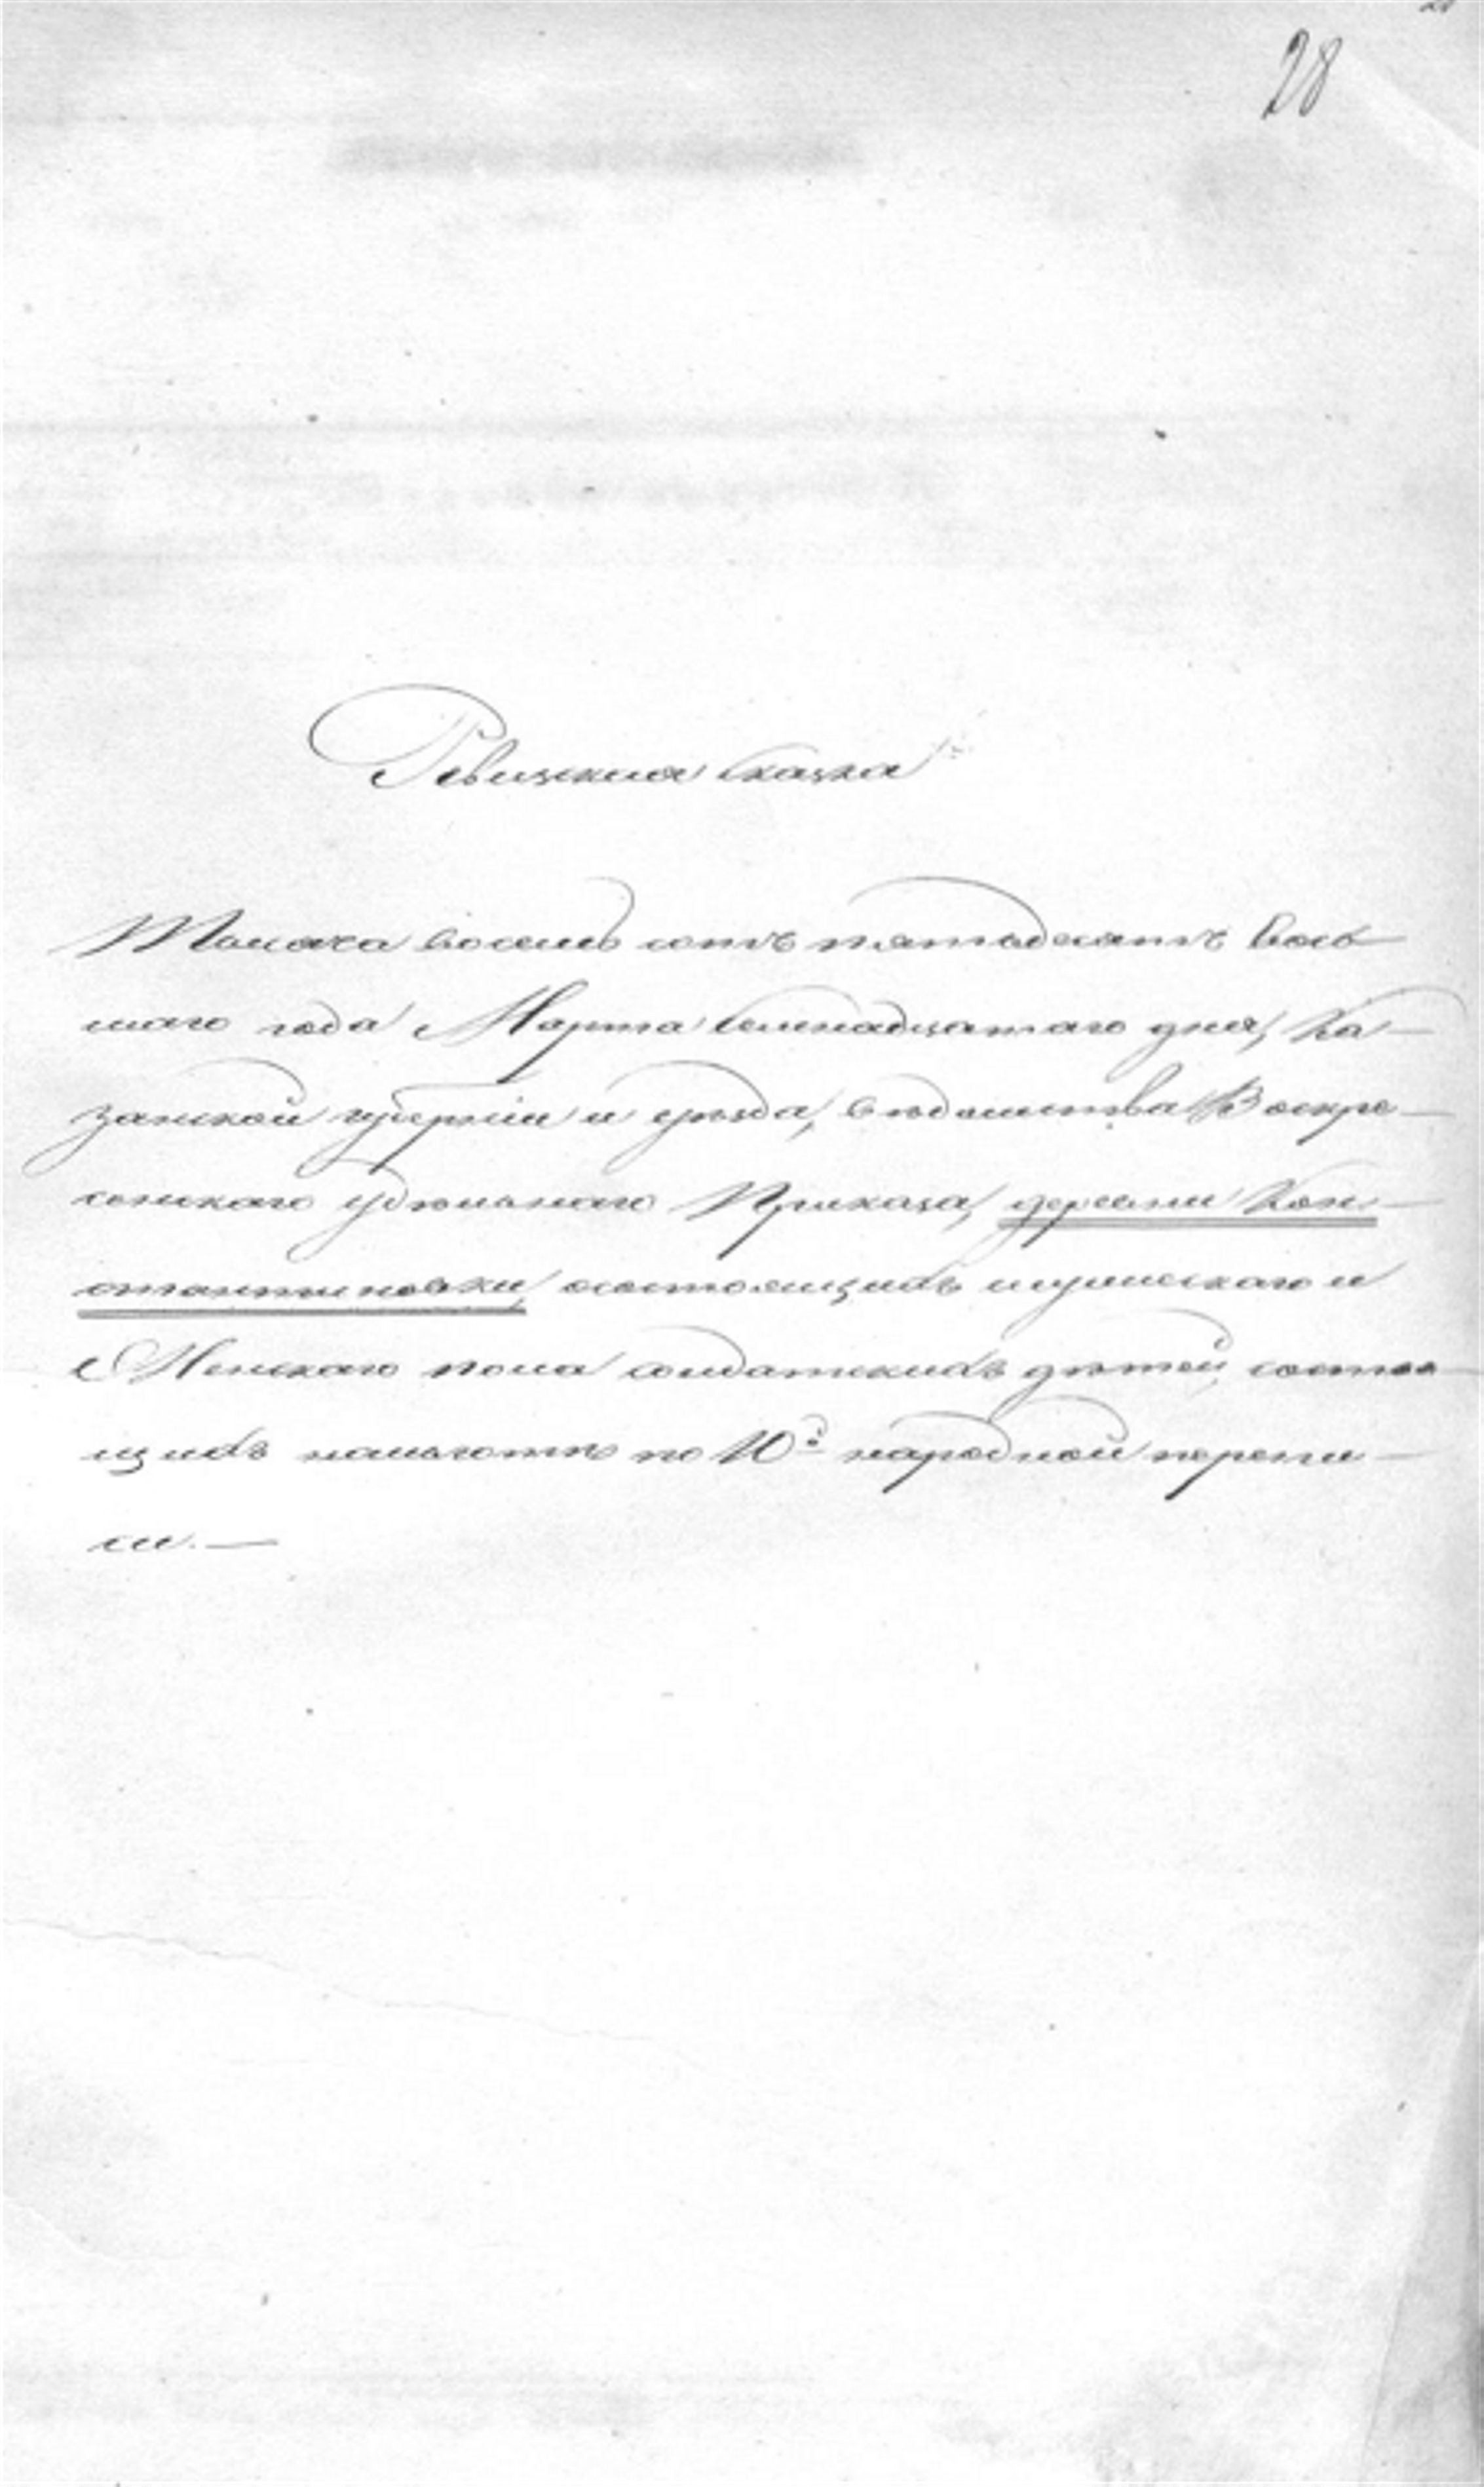 28
Ревизская сказка
Тысяча восемь сотъ пятьдесятъ вось
маго года Марта семнадцатаго дня, Ка-
занской губерніи и уѣзда, вѣдомства Воскре-
сенскаго удѣльнаго Приказа, деревни Кон-
стантиновки, о состоящихъ мужескаго и
Женскаго пола солдатскихъ дѣтей, состоя
щихъ на льготѣ по 10й народной перепи-
си. —